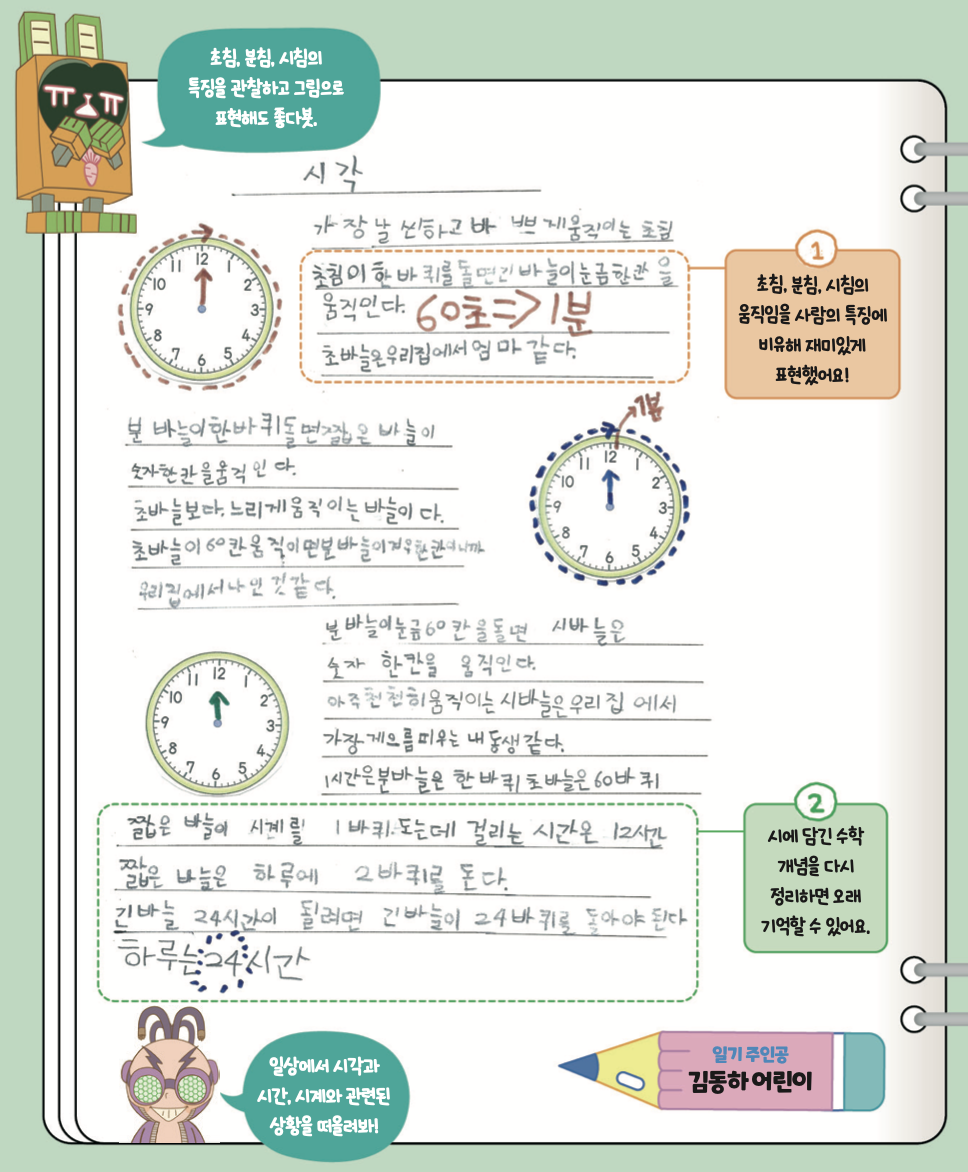 초침, 분침, 시침의
특징을 관찰하고 그림으로
표현해도 좋다봇.
시각
가장 날씬하고 바쁘게 움직이는 초침
초침이 한 바퀴를 돌면 긴 바늘이 눈금 한 칸을
움직인다. 60초=>1분
초바늘은 우리집에서 엄마 같다.
12 1 2 3 4 5 6 7 8 9 10 11
1
초침, 분침, 시침의
움직임을 사람의 특징에
비유해 재미있게
표현했어요!
분 바늘이 한 바퀴 돌면 짧은 바늘이
숫자 한 칸을 움직인다.
초바늘보다. 느리게 움직이는 바늘이다.
초바늘이 60칸 움직이면 분 바늘이 겨우 한 칸이니까
우리집에서 나인 것 같다.
1분
12 1 2 3 4 5 6 7 8 9 10 11
분 바늘이 눈금 60칸을 돌면 시바늘은
숫자 한칸을 움직인다.
아주 천천히 움직이는 시바늘은 우리 집에서
가장 게으름 피우는 내 동생 같다.
1시간은 분바늘은 한 바퀴 초바늘은 60바퀴
12 1 2 3 4 5 6 7 8 9 10 11
짧은 바늘이 시계를 1바퀴 도는데 걸리는 시간은 12시간
짧은 바늘은 하루에 2바퀴를 돈다.
긴바늘 24시간이 될려면 긴바늘이 24바퀴를 돌아야 된다
하루는 24시간
2
시에 담긴 수학
개념을 다시
정리하면 오래
기억할 수 있어요.
일상에서 시각과
시간, 시계와 관련된
상황을 떠올려봐!
일기 주인공
김동하 어린이